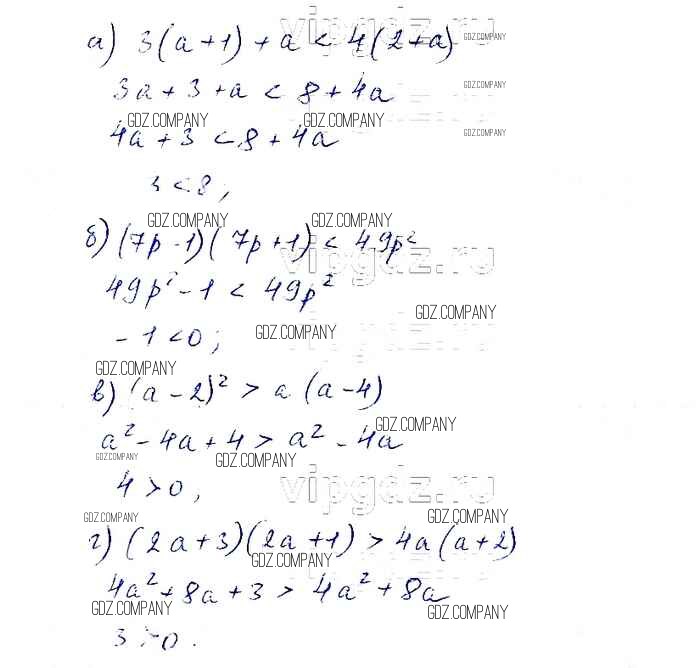 а) 3(a+1)+a<4(2+a)
3a+3+a<8+4a
4a+3<8+4a
3<8;
б) (7p-1)(7p+1)<49p²
49p²-1<49p²
-1<0;
в) (a-2)²>a(a-4)
a²-4a+4>a²-4a
4>0;
г) (2a+3)(2a+1)>4a(a+2)
4a²+8a+3>4a²+8a
3>0.
vipgdz.ru
GDZ.COMPANY
GDZ.COMPANY
GDZ.COMPANY
GDZ.COMPANY
GDZ.COMPANY
GDZ.COMPANY
GDZ.COMPANY
vipgdz.ru
GDZ.COMPANY
GDZ.COMPANY
GDZ.COMPANY
GDZ.COMPANY
GDZ.COMPANY
GDZ.COMPANY
vipgdz.ru
GDZ.COMPANY
GDZ.COMPANY
GDZ.COMPANY
GDZ.COMPANY
GDZ.COMPANY